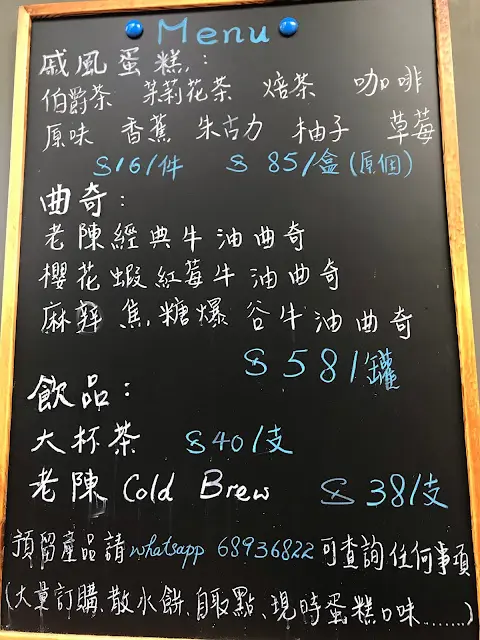 Menu
戚風蛋糕:
伯爵茶 茉莉花茶 焙茶 咖啡
原味 香蕉 朱古力 柚子 草莓
$16/件 $85/盒(原個)
曲奇:
老陳經典牛油曲奇
櫻花蝦紅莓牛油曲奇
麻辣焦糖爆谷牛油曲奇
$58/罐
飲品:
大杯茶 $40/支
老陳 Cold Brew $38/支
預留產品請whatsapp 68936822可查詢任何事項
(大量訂購、散水餅、自取點、現時蛋糕口味……..)